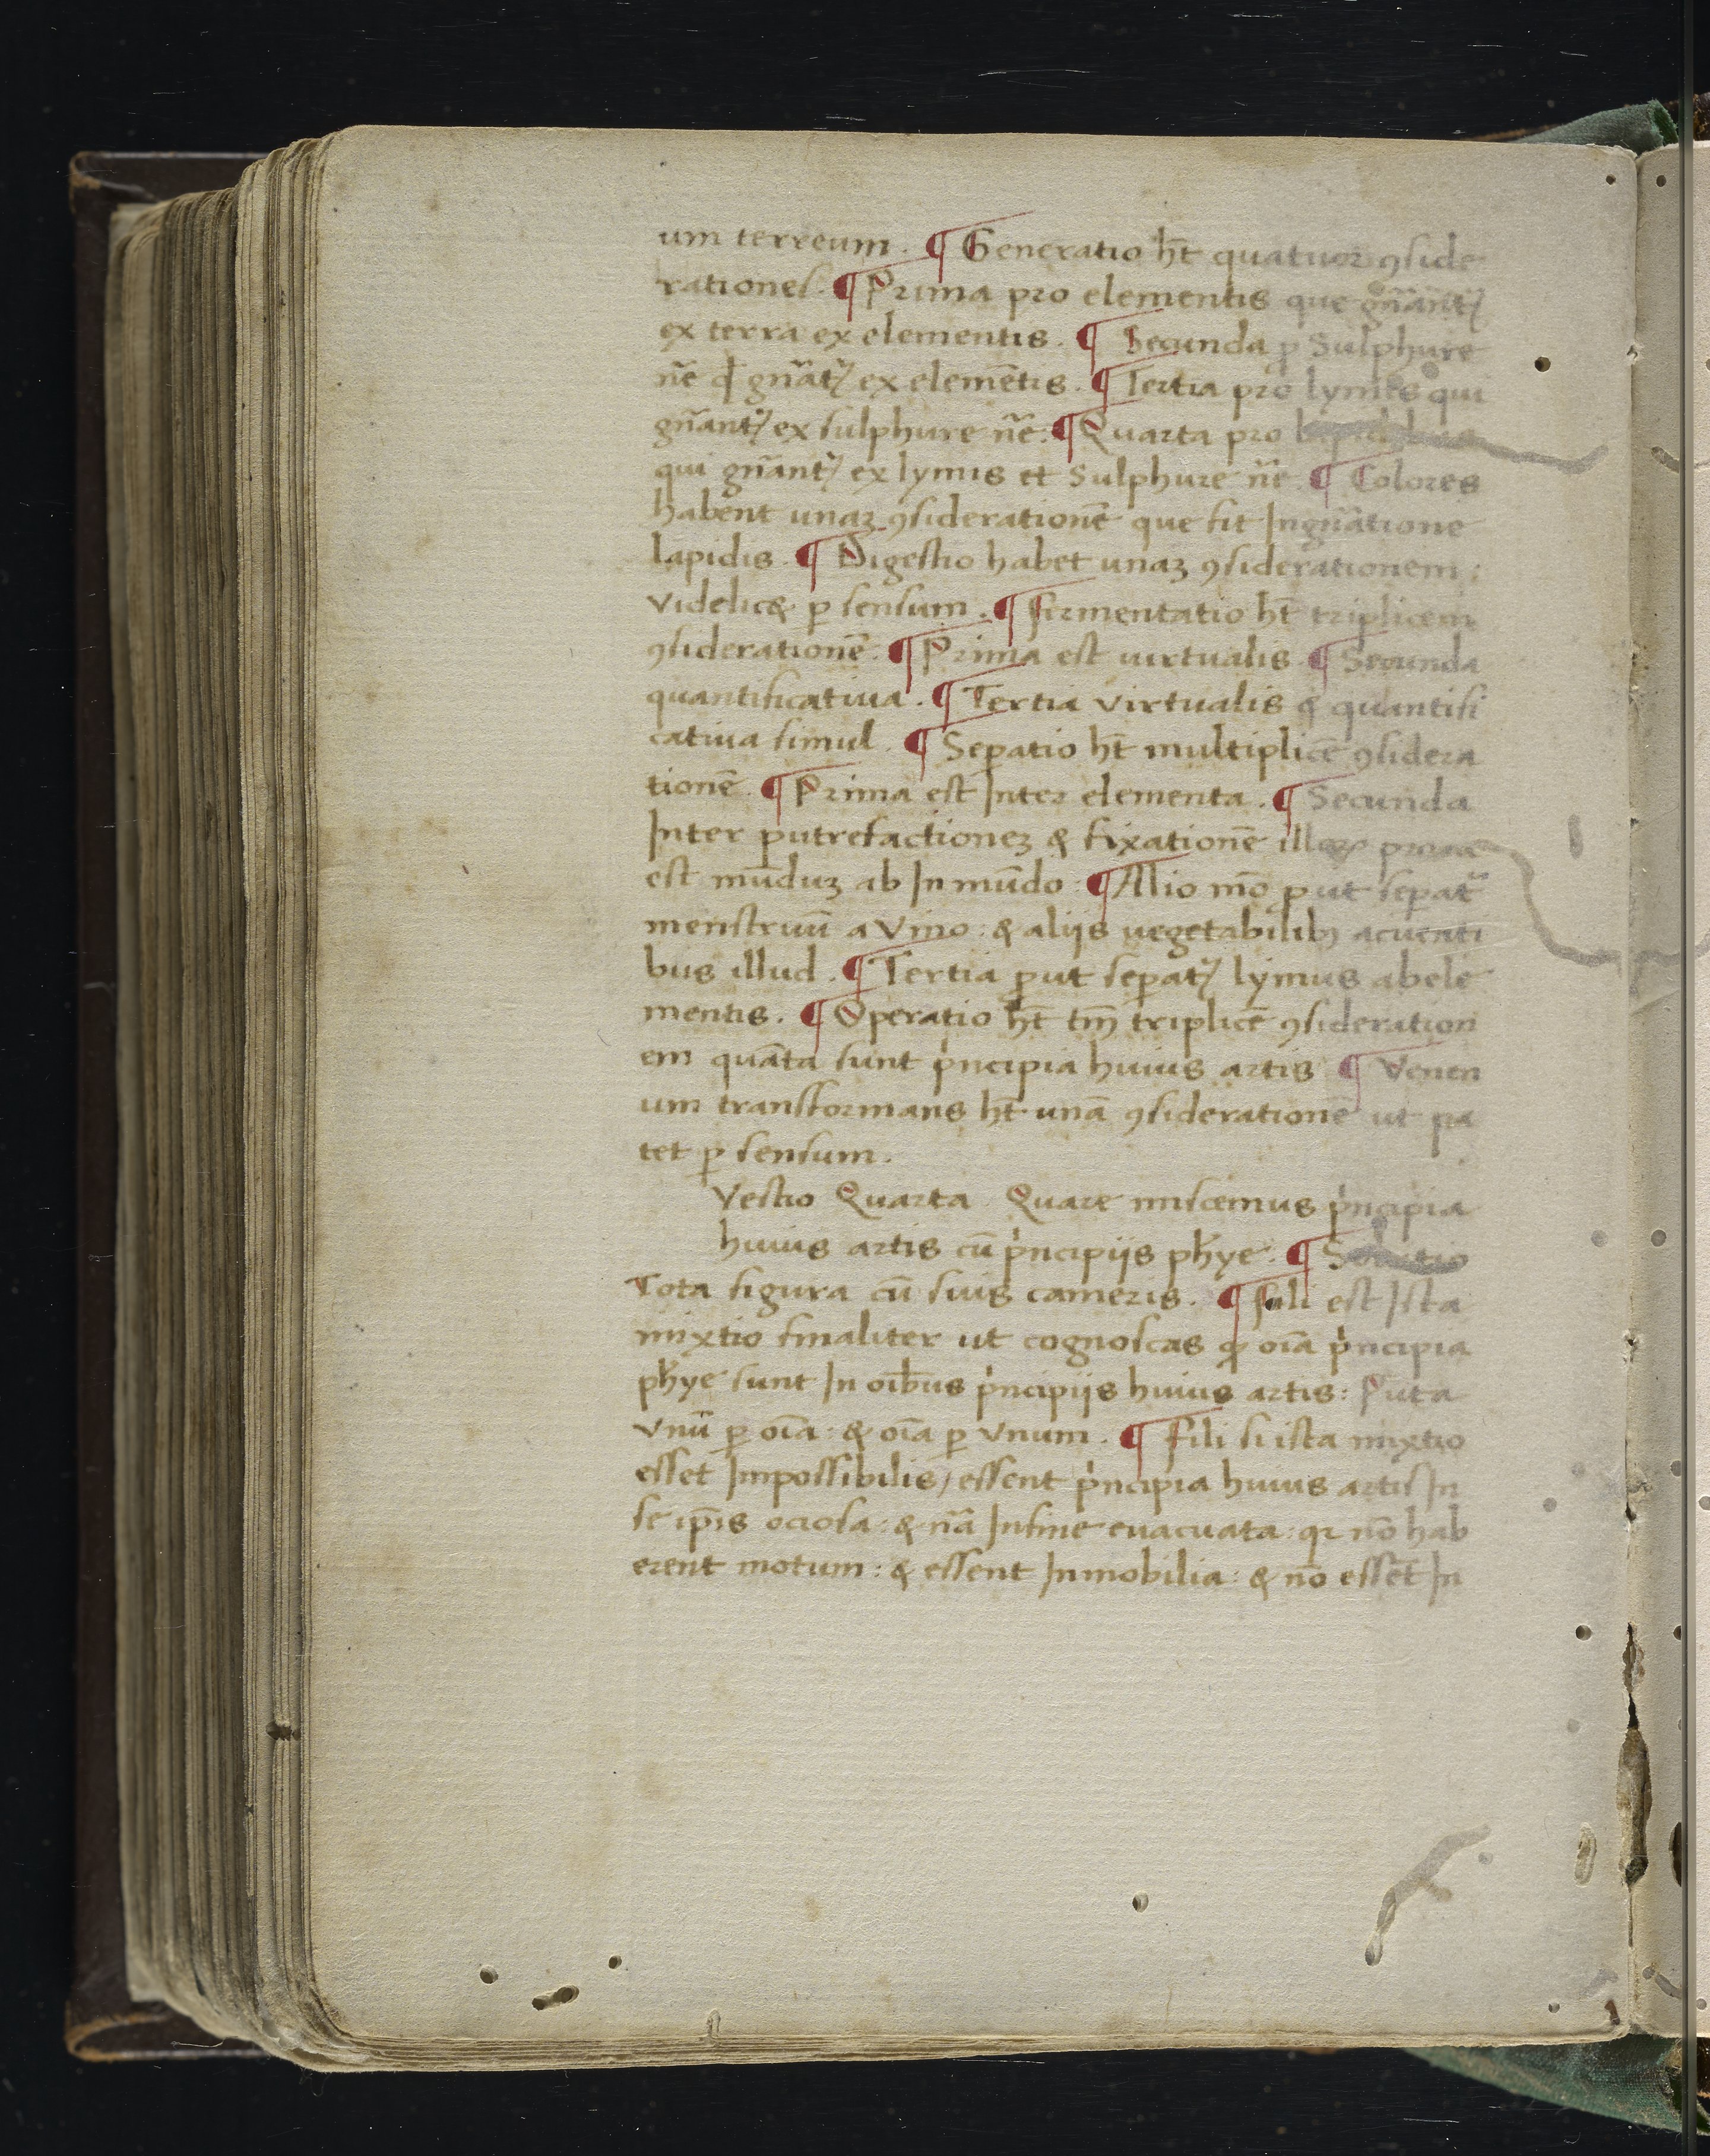 um terreum. ¶ Generatio ht̄ quatuor ꝯside
rationes. ¶ Prima pro elementis que gn̄ant᷑
ex terra ex elementis. ¶ Secunda ꝑ Sulphure
nr̄e qd̄ gn̄at᷑ ex elemētis. ¶ Tertia pro lymis qui
gn̄ant᷑ ex sulphure nr̄e: ¶ Quarta pro
qui gn̄ant᷑ ex lymis et Sulphure nr̄e. ¶ Colores
habent unaꝫ ꝯsiderationē que fit Ingn̄atione
lapidis. ¶ Digestio habet unaꝫ ꝯsiderationem:
videlicꝫ ꝑ sensum. ¶ firmentatio ht̄ triplicem
ꝯsiderationē. ¶ Prima est virtualis. ¶ Secunda
quantificatiua. ¶ Tertia virtualis & quantifi
catiua simul. ¶ Seꝑatio ht̄ multiplicē ꝯsidera
tionē. ¶ Prima est Inter elementa. ¶ Secunda
Inter putrefactioneꝫ & fixationē
est mūduꝫ ab Inmūdo: ¶ Alio mō ꝓut seꝑat᷑
menstruū a Vino: & aliis vegetabilibꝫ acuenti
bus illud. ¶ Tertia ꝓut seꝑat᷑ lymus abele
mentis. ¶ Operatio ht̄ tm̄ triplicē ꝯsideration
em quāta sunt pͥncipia huius artis ¶ Venen
um transformans ht̄ unā ꝯsiderationē ut pa
tet ꝑ sensum.
Vestio Quarta. Quare miscemus pͥncipia
huius artis cū pͥncipiis ph̄ye. ¶ Solutio
Tota figura cū suis cameris. ¶ fili est Ista
mixtio finaliter ut cognoscas ꝙ oīa pͥncipia
ph̄ye sunt In oībus pͥncipiis huius artis: Puta
vnū ꝑ oīa: & oīa ꝑ vnum. ¶ fili si ista mixtio
esset Impossibilis/ essent pͥncipia huius artis In
se ip̄is ociosa: & nr̄a Infine euacuata: qꝛ nō hab
erent motum: & essent Inmobilia: & nō essēt In